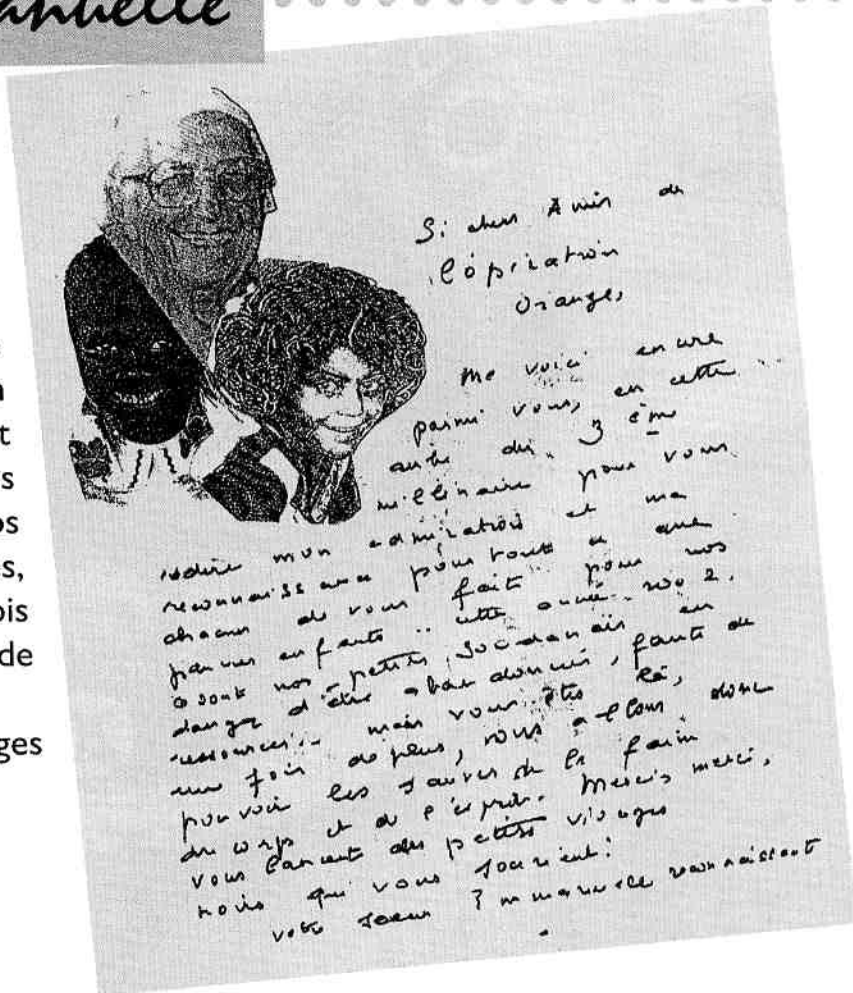 anuelle
t
s
os
s,
ois
de
ges
Si chers Amis de
l'opération
Orange,
Me voici encore
parmi vous, en cette
aube du 3 ème
millénaire pour vous
redire mon admiration et ma
reconnaissance pour tout ce que
chacun de vous fait pour nos
pauvres enfants.. cette année 2002.
ce sont nos petits Soudanais en
danger d'être abandonnés, faute de
ressources.. mais vous êtes là,
une fois de plus, nous allons donc
pouvoir les sauver de la faim
du corps et de l'esprit. Merci, merci,
vous des petits visages
noirs qui vous sourient!
votre Soeur Emmanuelle reconnaissante